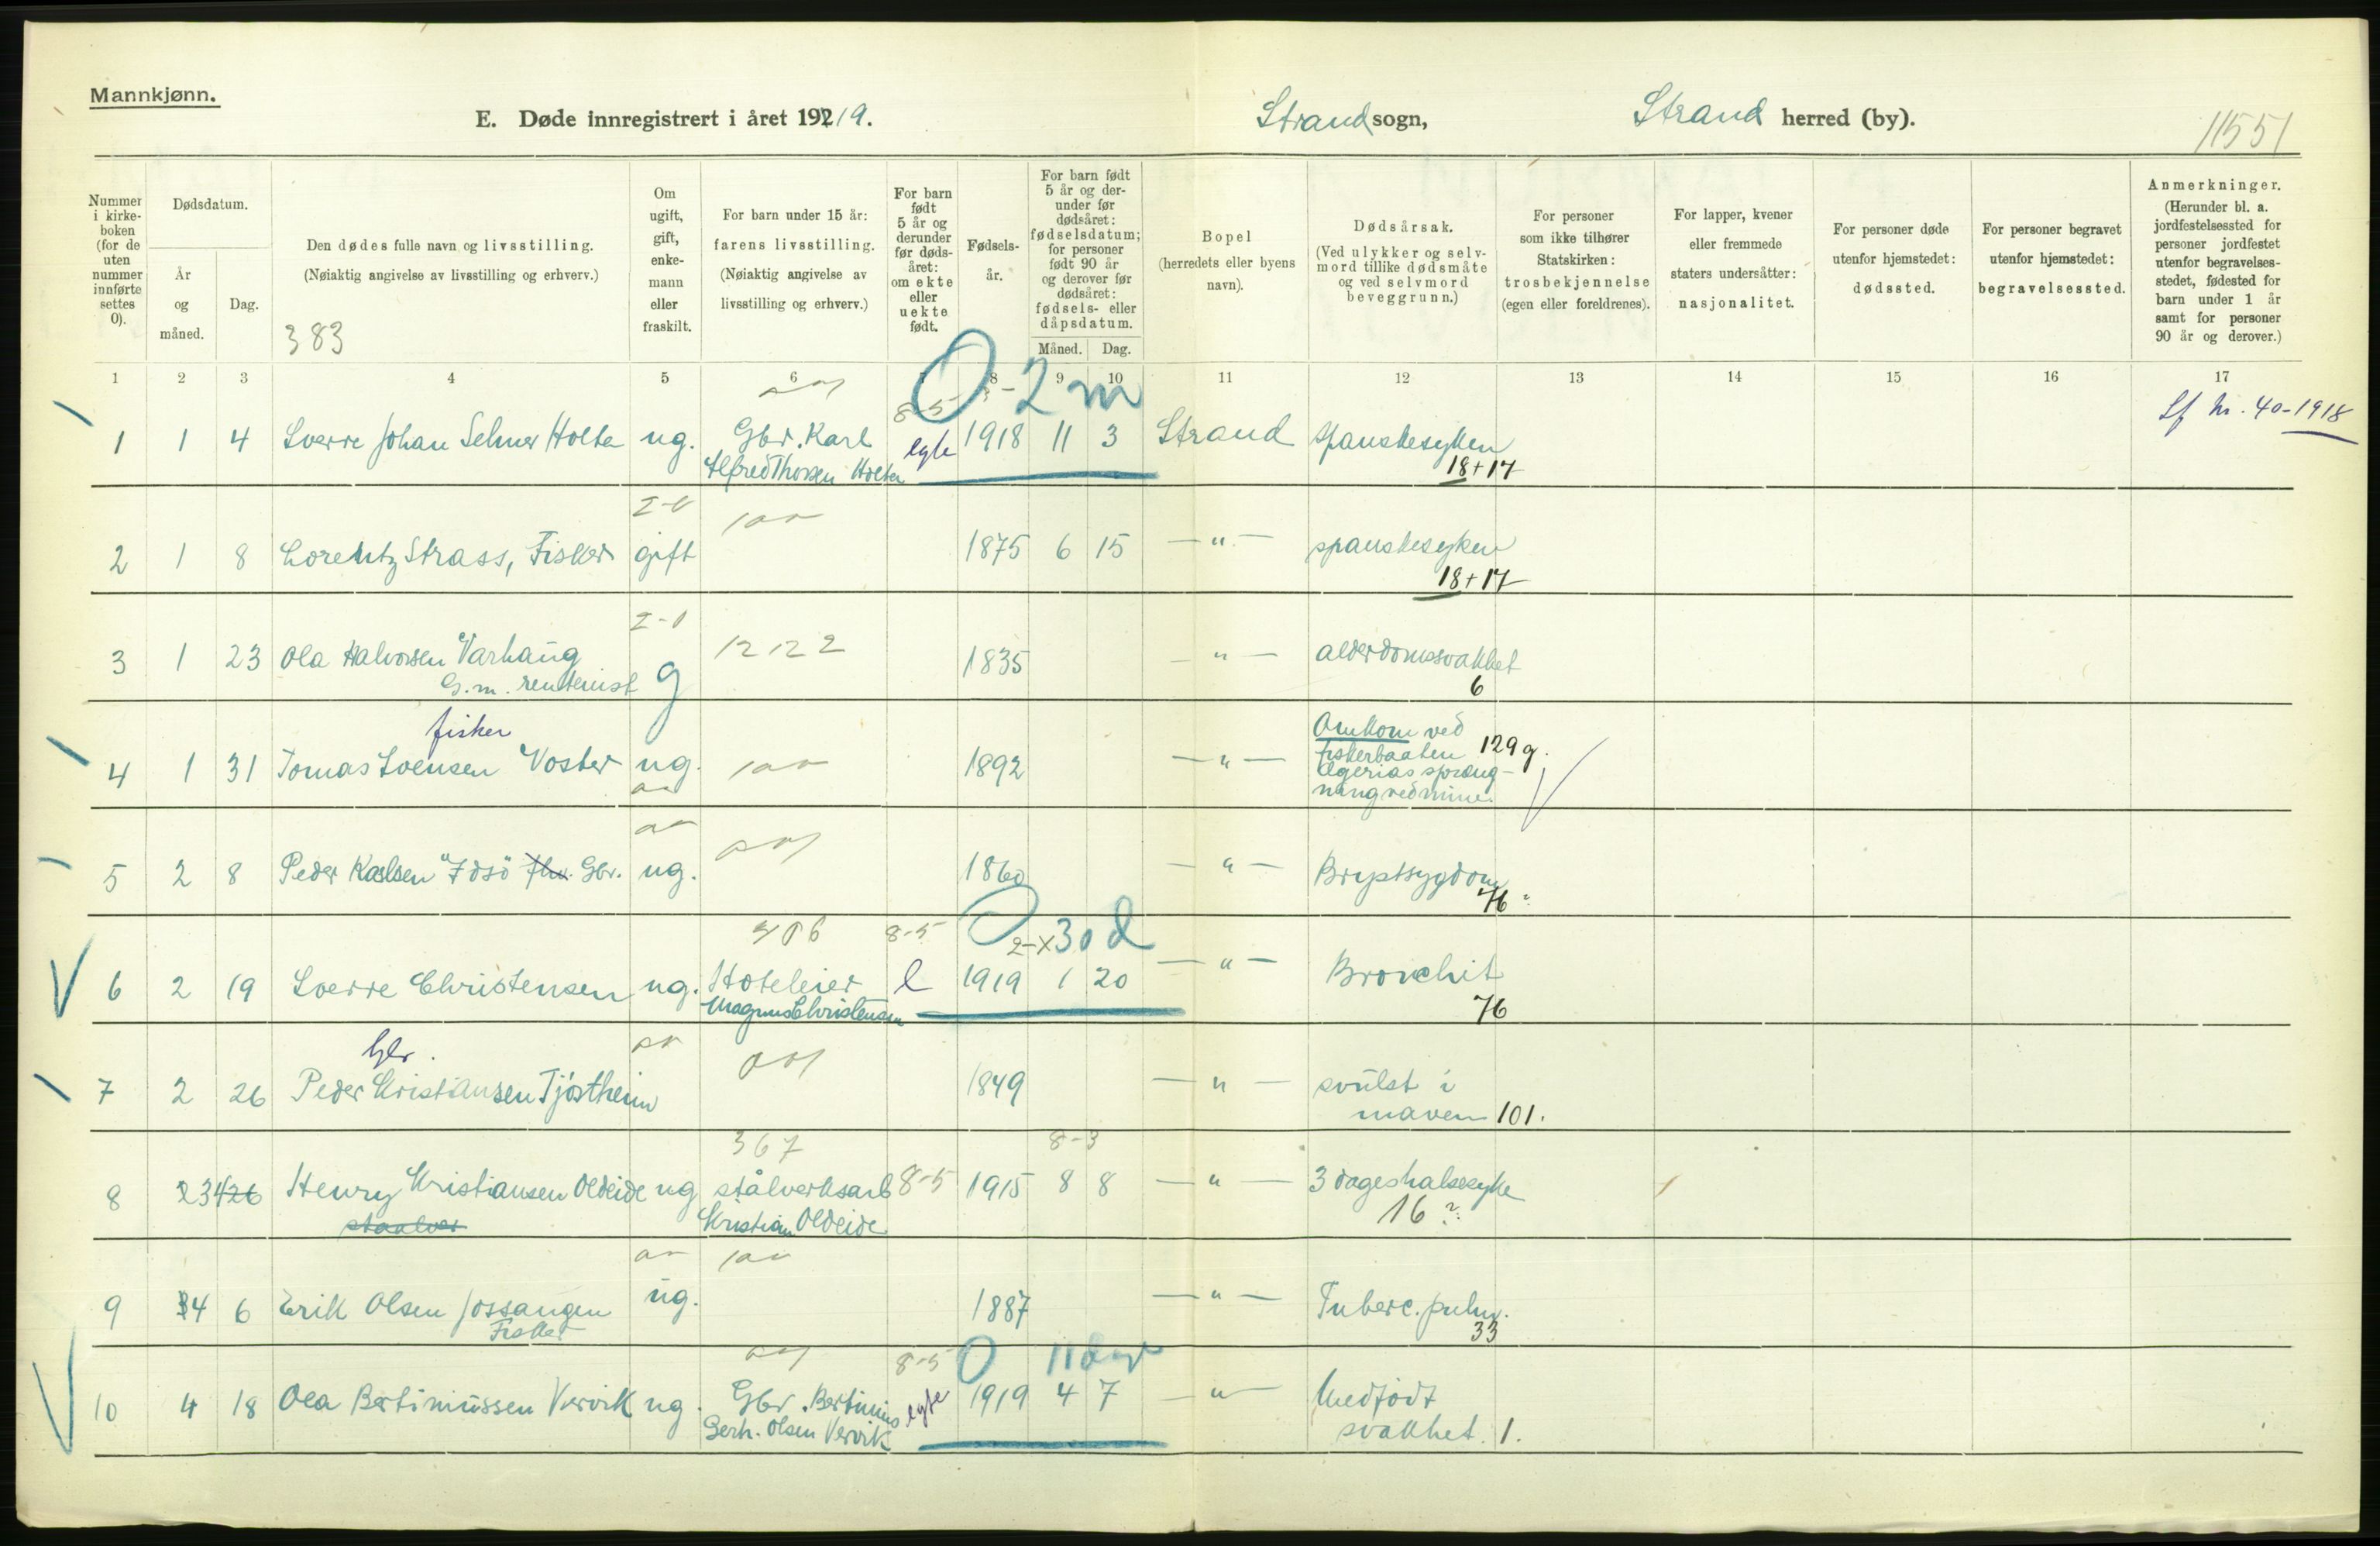 Mannkjønn.
E. Døde innregistrert i året 19219.
Strand sogn,
Strand herred (by).
11551
Nummer i kirke-boken (for de uten nummer innførte settes 0).
Dødsdatum.
År og måned.
Dag.
Den dødes fulle navn og livsstilling.
(Nøiaktig angivelse av livsstilling og erhverv.)
383
Om ugift, gift, enke-mann eller fraskilt.
For barn under 15 år:
farens livsstilling.
(Nøiaktig angivelse av livsstilling og erhverv.)
For barn født 5 år og derunder før døds-året: om ekte eller uekte født.
Fødsels-år.
For barn født 5 år og der-under før dødsåret: fødselsdatum; for personer født 90 år og derover før dødsåret: fødsels- eller dåpsdatum.
Måned.
Dag.
Bopel
(herredets eller byens navn).
Dødsårsak.
(Ved ulykker og selv-mord tillike dødsmåte og ved selvmord beveggrunn.)
For personer som ikke tilhører Statskirken: trosbekjennelse (egen eller foreldrenes).
For lapper, kvener eller fremmede staters undersåtter: nasjonalitet.
For personer døde utenfor hjemstedet: dødssted.
For personer begravet utenfor hjemstedet: begravelsessted.
Anmerkninger.
(Herunder bl. a. jordfestelsessted for personer jordfestet utenfor begravelses-stedet, fødested for barn under 1 år samt for personer 90 år og derover.)
1 2 3 4 5 6 7 8 9 10 11 12 13 14 15 16 17
8-5 0 2 m
1 1 4 Sverre Johan Selmer Holta ug. Gbr. Karl egte 1918 11 3 Strand Spanskesyken
Alfred Thorsen Holta 18+17
Lf nr. 40-1918
2 1 8 Lorentz Strass, Fisker gift 1875 6 15 - " - spanskesyken
18+17
1212 2
3 1 23 Ola Halvorsen Varhaug g 1835 - " - alderdomssvakhet
G.m. rentenist 6
fisker
4 1 31 Tomas Svensen Voster ug. 1892 - " - Omkom ved
fiskerbaaten 129 g.
Ægerias spræng-
ning ved mine.
5 2 8 Peder Karlsen Idsö Gbr. ug. 1860 - " - Brystsygdom
76 ?
8-5 0 2-x 30 d
6 2 19 Sverre Christensen ug. Hoteleier e 1919 1 20 - " - Bronchit
Magnus Christensen 76
Gbr.
7 2 26 Peder Kristiansen Tjøstheim 1849 - " - svulst i
maven 101.
367 8-3
8 23426 Henry Kristiansen Oldeide ug stålverksarb 8-5 1915 8 8 - " - 3 dages halssyke
staalver Kristian Oldeide 16 ?
9 34 6 Erik Olsen Jossangen ug. 1887 - " - Tuberc. pulm.
Fisker 33
8-5 0 11 dage
10 4 18 Ola Bertiniussen Vervik ug. Gbr. Bertinius egte 1919 4 7 - " - Medfødt
Berh. Olsen Vervik svakhet. 1.